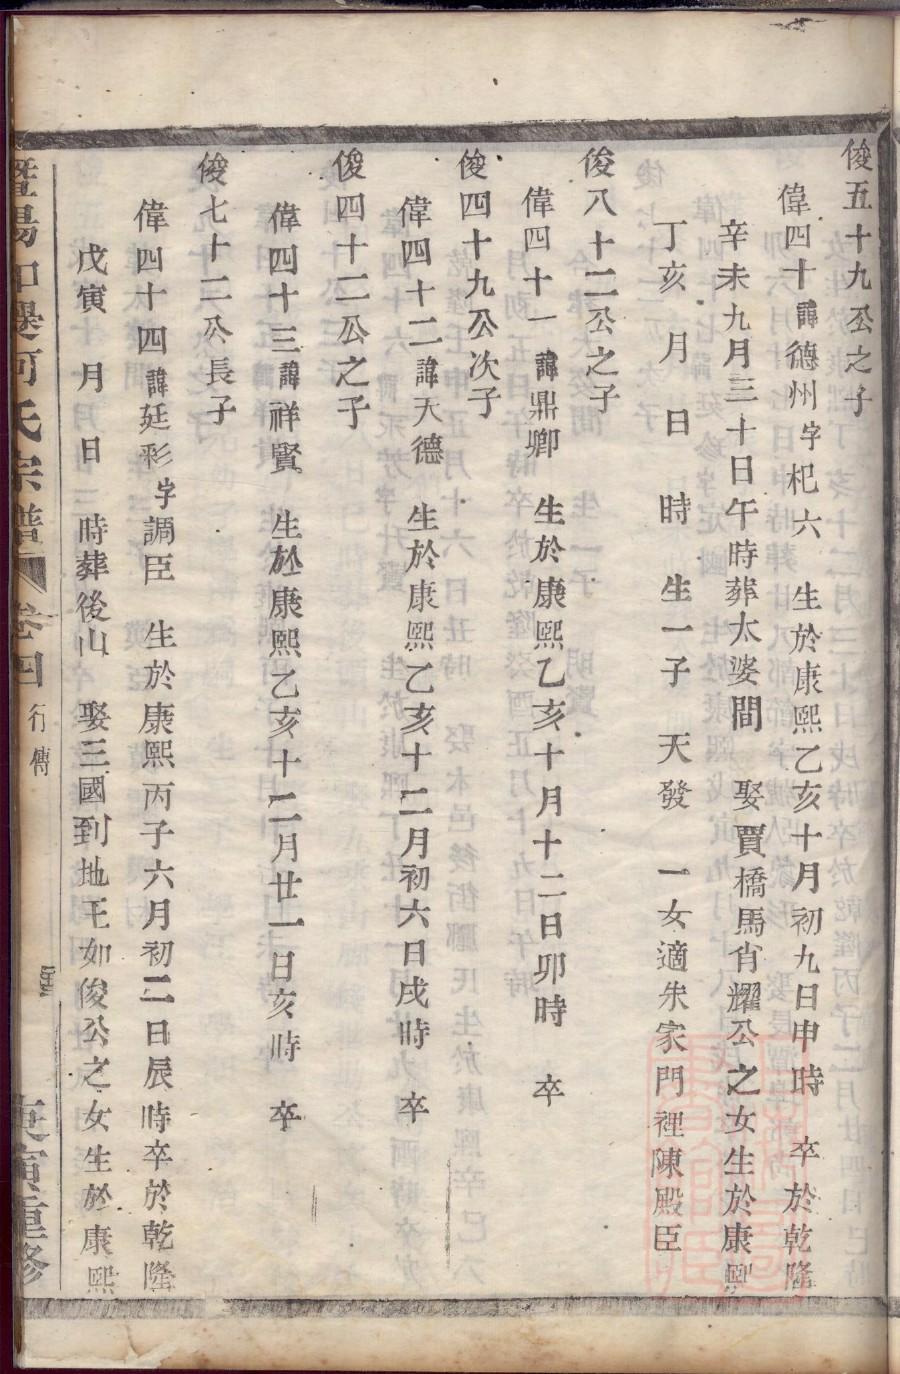 俊五十九公之子
偉四十諱德州字杞六 生於康熙乙亥十月初九日申時 卒於乾隆
辛未九月三十日午時葬太婆間 娶賈橋馬省耀公之女生於康熙
丁亥 月 日 時 生一子 天發 一女適朱家門裡陳殿臣
俊八十二公之子
偉四十一諱鼎卿 生於康熙乙亥十月十二日卯時 卒
俊四十九公次子
偉四十二諱天德 生於康熙乙亥十二月初六日戌時 卒
俊四十二公之子
偉四十三諱祥賢 生於康熙乙亥十二月廿一日亥時 卒
俊七十二公長子
偉四十四諱廷彩字調臣 生於康熙丙子六月初二日辰時卒於乾隆
戊寅 月 日 時葬後山 娶三國到地王如俊公之女生於康熙
暨陽 河氏宗譜 卷四 行傳 庚寅重修